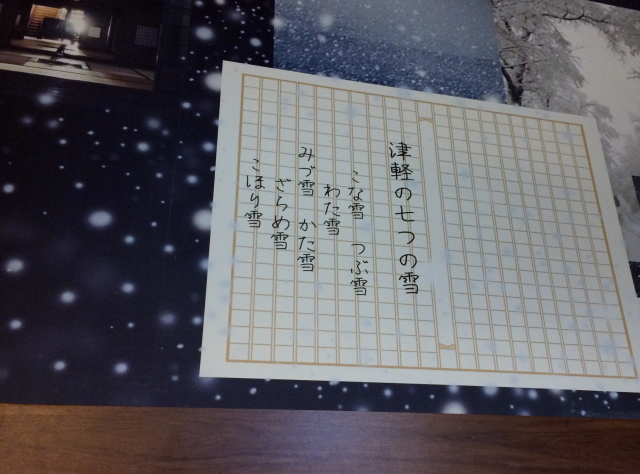 津軽の七つの雪
こな雪　つぶ雪
わた雪
みづ雪　かた雪
ざらめ雪
こほり雪